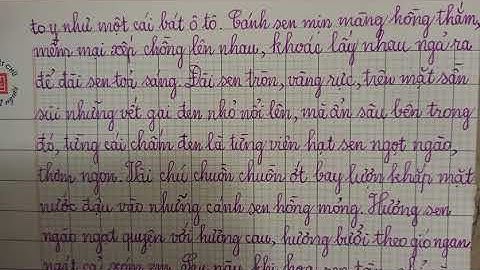 to y như một cái bát ô tô. Cánh sen mịn màng hồng thắm,
mềm mại xếp chồng lên nhau, khoác lấy nhau ngả ra
để đài sen toả sáng. Đài sen tròn, vàng rực, trên mặt sần
sùi những vết gai đen nhỏ nổi lên, mà ẩn sâu bên trong
đó, từng cái chấm đen là từng viên hạt sen ngọt ngào,
thơm ngon. Vài chú chuồn chuồn ớt bay lượn khắp mặt
nước đậu vào những cánh sen hồng mỏng. Hương sen
ngào ngạt quyện với hương cau, hương bưởi theo gió ngan
ngát cả xóm em.